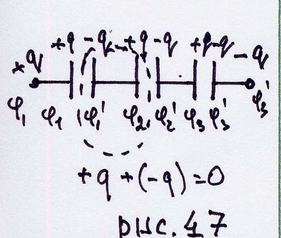 +q +q -q +q -q +q -q -q
φ₁ φ₁ φ₁' φ₂ φ₂' φ₃ φ₃' φ₃'
+q +(-q) =0
рис. 4.7